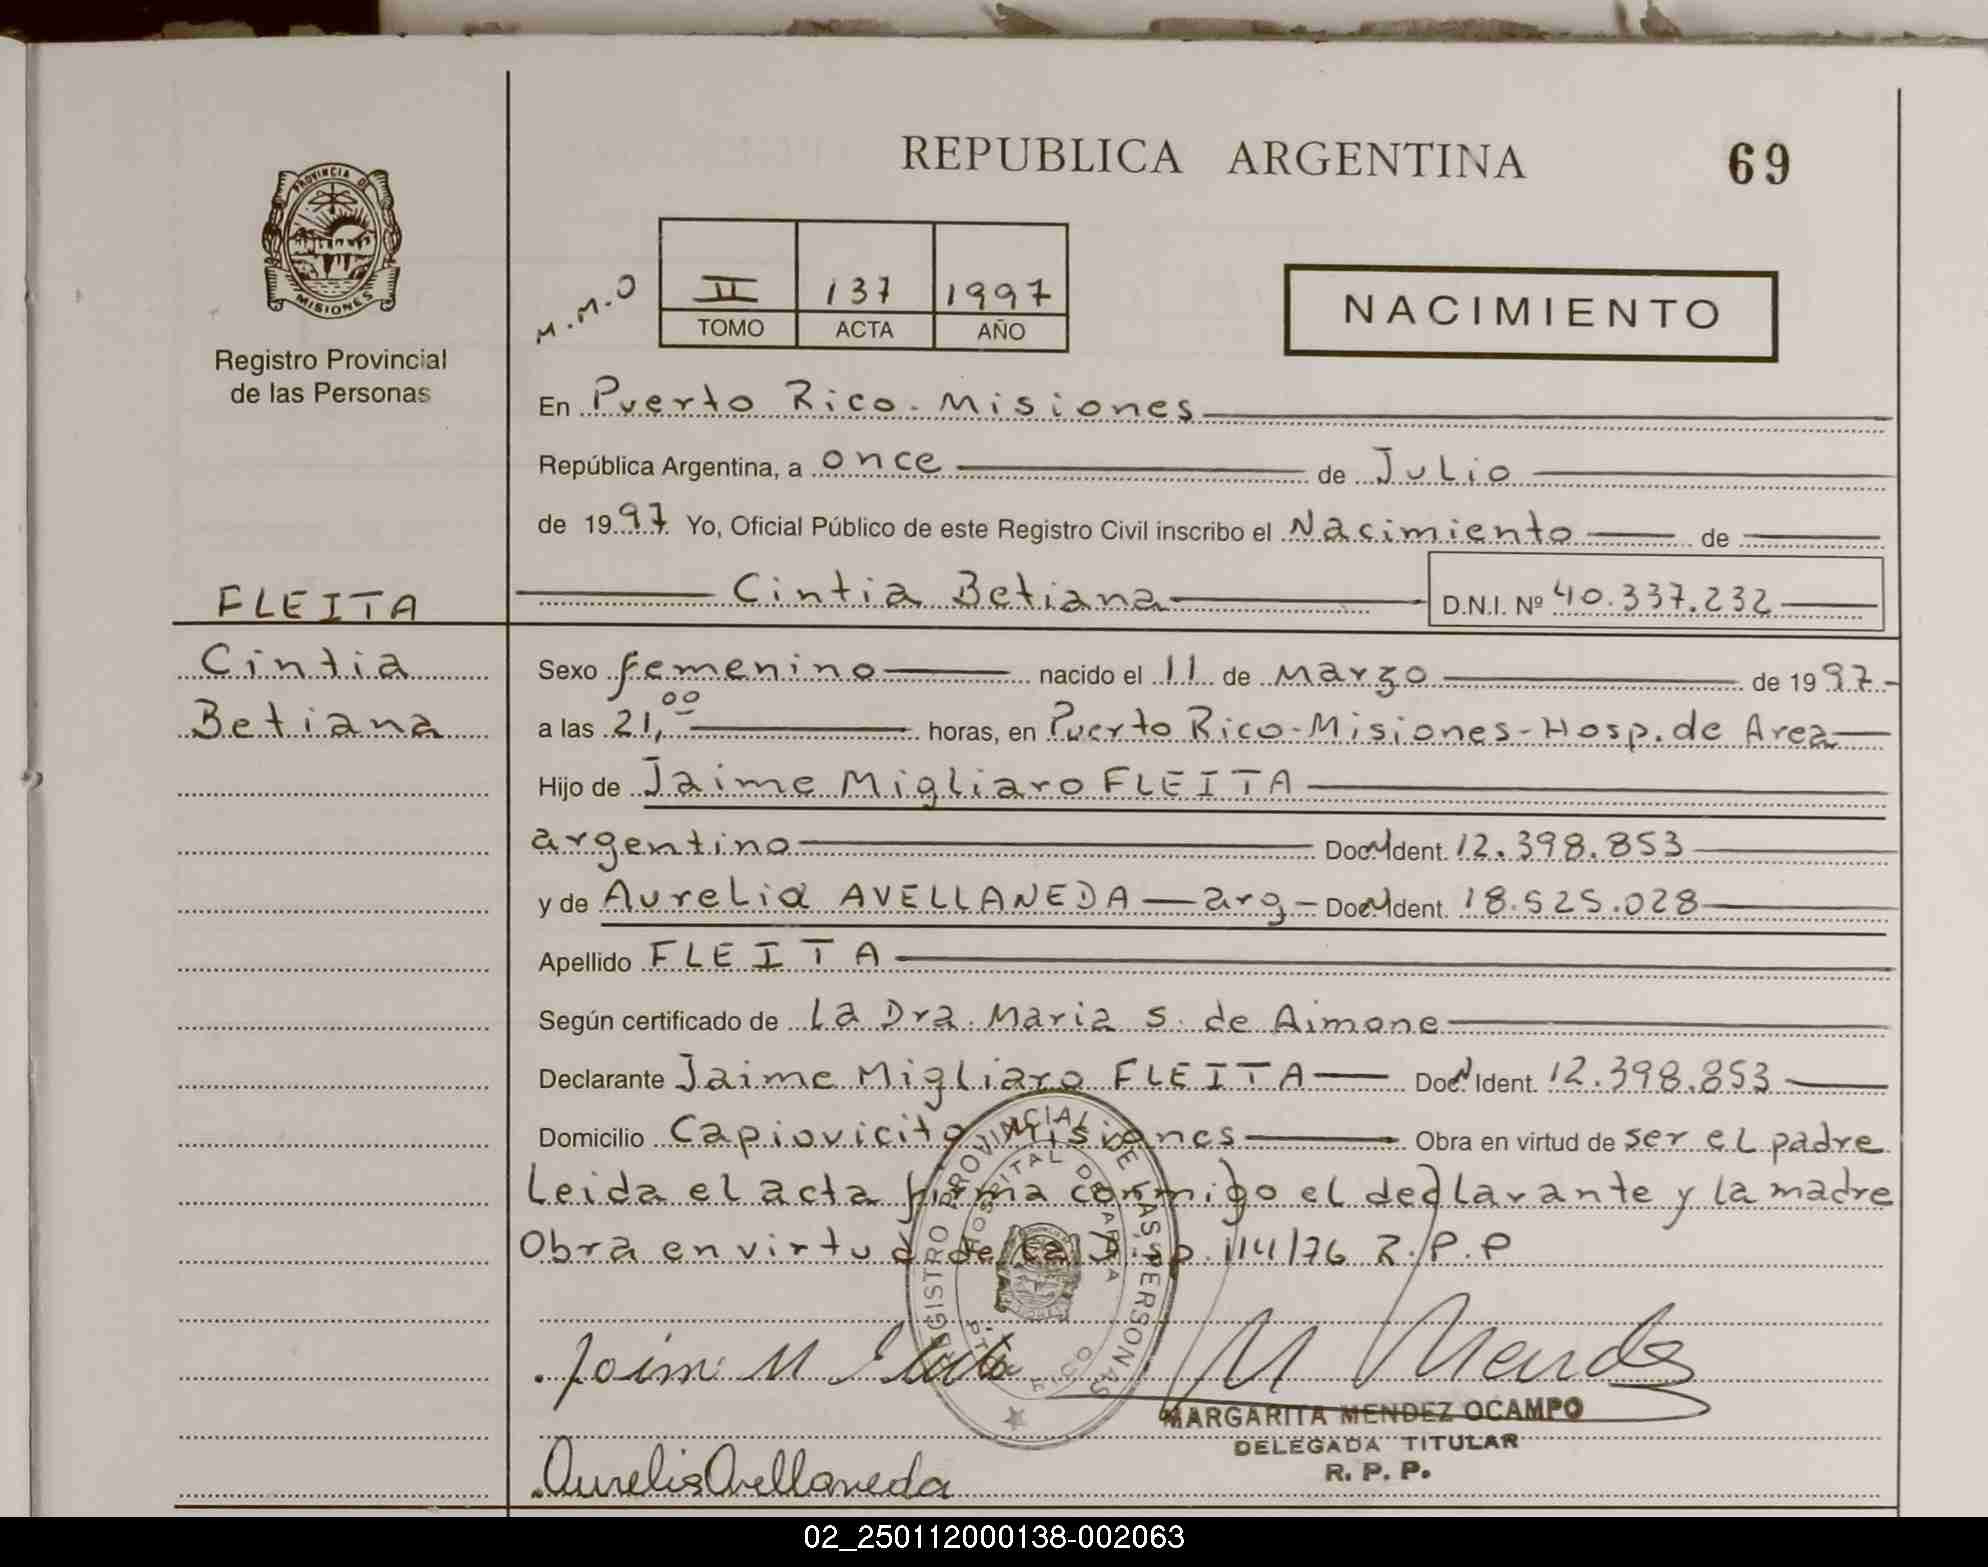 REPUBLICA ARGENTINA
69
PROVINCIA DE
MISIONES
Registro Provincial
de las Personas
M.M.O
II 137 1997
TOMO ACTA AÑO
NACIMIENTO
En Puerto Rico - Misiones
República Argentina, a once de Julio
de 1997 Yo, Oficial Público de este Registro Civil inscribo el Nacimiento de
FLEITA
Cintia
Betiana
Cintia Betiana D.N.I. Nº 40.337.232
Sexo femenino nacido el 11 de Marzo de 1997
a las 21,00 horas, en Puerto Rico - Misiones - Hosp. de Area
Hijo de Jaime Migliaro FLEITA
argentino Doc. Ident. 12.398.853
y de Aurelia AVELLANEDA — arg — Doc. Ident. 18.525.028
Apellido FLEITA
Según certificado de La Dra. Maria S. de Aimone
Declarante Jaime Migliaro FLEITA Doc. Ident. 12.398.853
Domicilio Capiovicito Misiones Obra en virtud de ser el padre
Leida el acta firma conmigo el declarante y la madre
Obra en virtud de la Disp. 114/76 R.P.P
REGISTRO PROVINCIAL DE LAS PERSONAS
HOSPITAL DE AREA
PTO. RICO
M Mendez
MARGARITA MENDEZ OCAMPO
DELEGADA TITULAR
R. P. P.
Aurelia Avellaneda
02_250112000138-002063